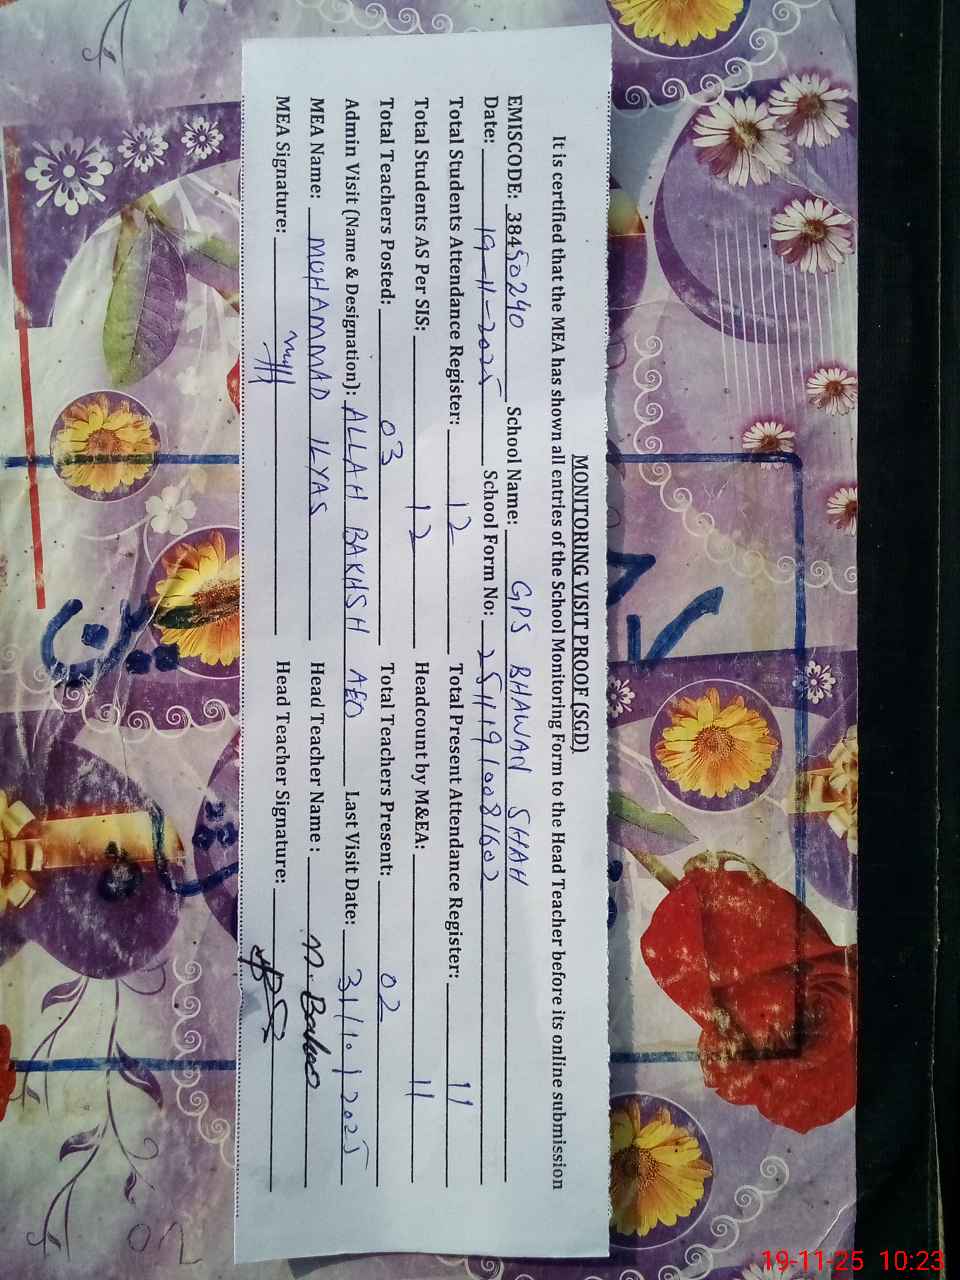 MONITORING VISIT PROOF (SGD)
It is certified that the MEA has shown all entries of the School Monitoring Form to the Head Teacher before its online submission
EMISCODE: 38450240 School Name: GPS BHAWAN SHAH
Date: 19-11-2025 School Form No:
Total Students Attendance Register: 12 Total Present Attendance Register: 11
Total Students AS Per SIS: 12 Headcount by M&EA: 11
Total Teachers Posted: 03 Total Teachers Present: 02
Admin Visit (Name & Designation): ALLAH BAKHSH AEO Last Visit Date: 31/10/2025
MEA Name: MOHAMMAD ILYAS Head Teacher Name :
MEA Signature: Head Teacher Signature:
19-11-25 10:23